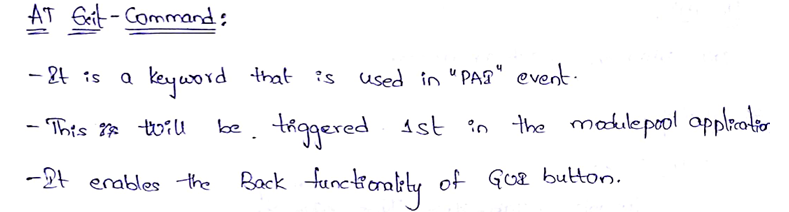 AT Exit-Command:
- It is a keyword that is used in "PAI" event.
- This will be triggered 1st in the modulepool application
- It enables the Back functionality of GUI button.